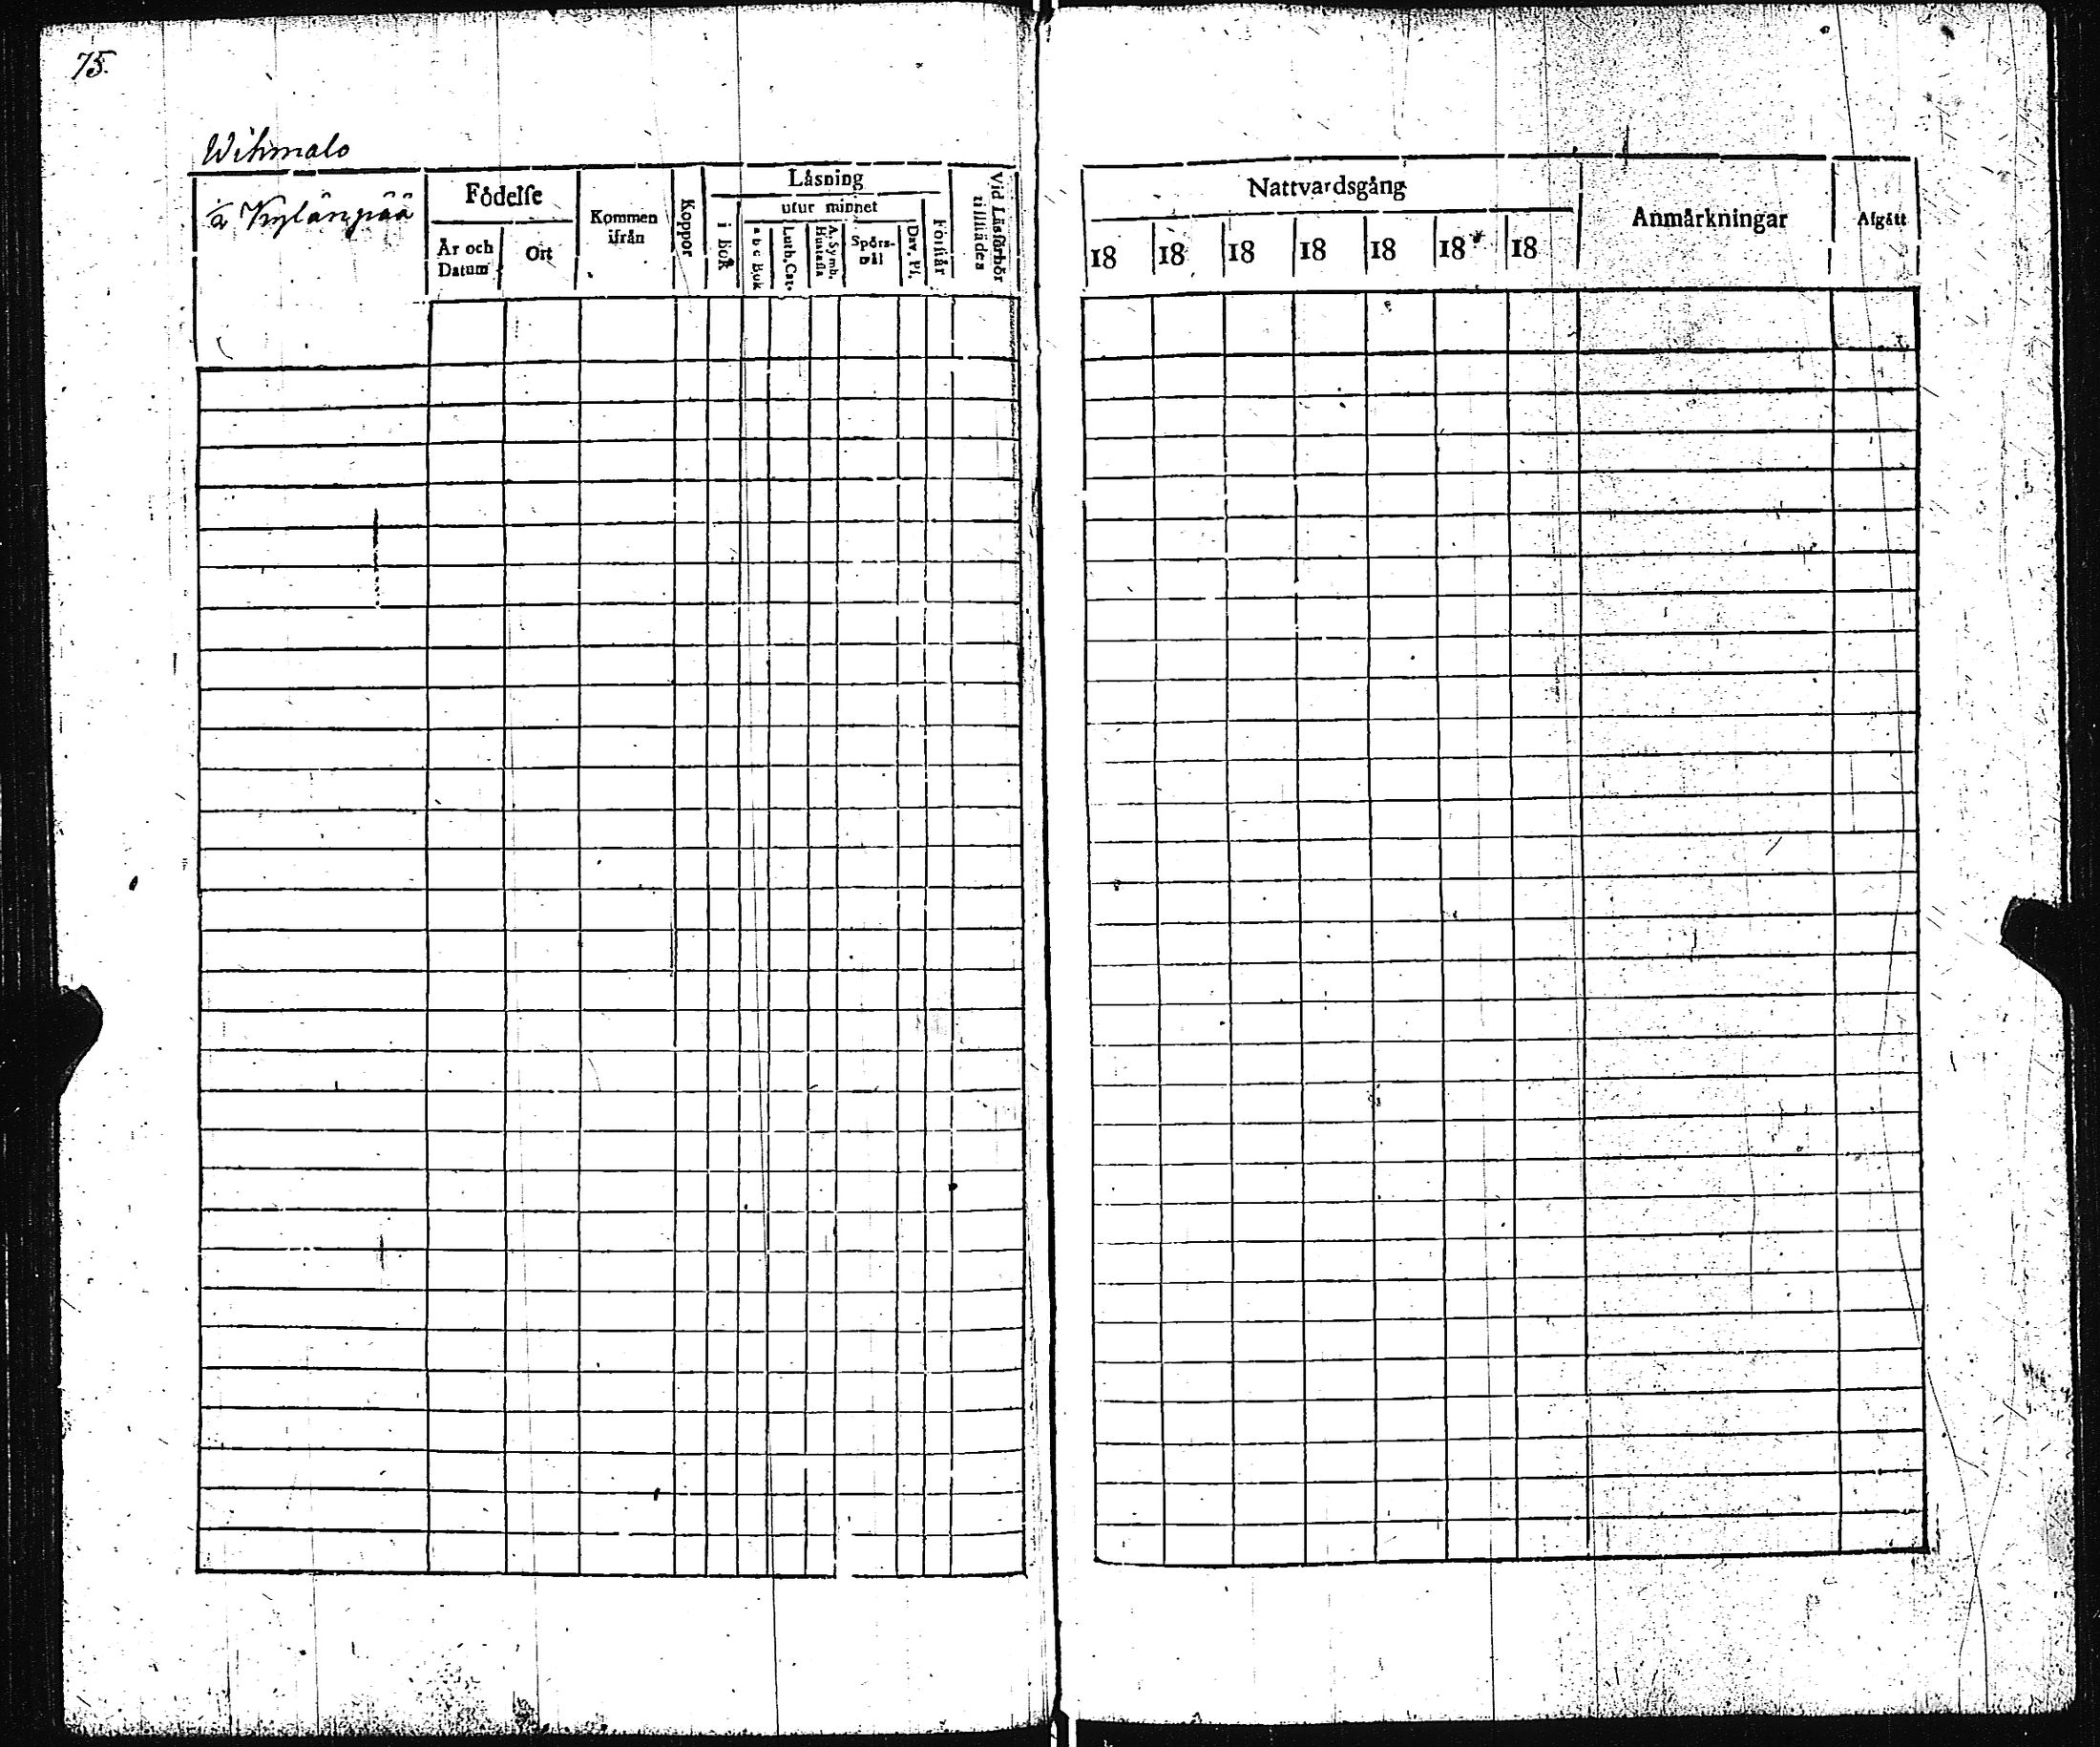 75.
Wihmalo
Kylänpää
Födelse
År och
Datum
Ort
Kommen
ifrån
Koppor
Låsning
i Bok
utur minnet
a b c Bok
Luth. Cat.
A. Symb.
Hustafla
Spörs-
mål
Dav. Ps.
Förstår
Vid Läsförhör
tillstädes
Nattvardsgång
18 18 18 18 18 18 18
Anmårkningar
Afgått